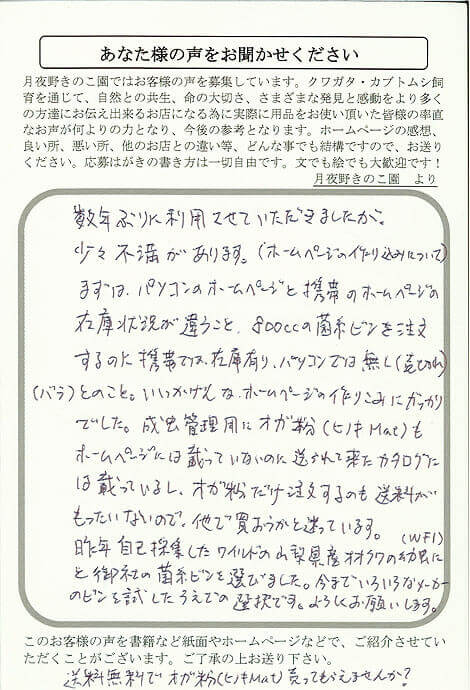 あなた様の声をお聞かせください
月夜野きのこ園ではお客様の声を募集しています。クワガタ・カブトムシ飼
育を通じて、自然との共生、命の大切さ、さまざまな発見と感動をより多く
の方達にお伝え出来るお店になる為に実際に用品をお使い頂いた皆様の率直
なお声が何よりの力となり、今後の参考となります。ホームページの感想、
良い所、悪い所、他のお店との違い等、どんな事でも結構ですので、お送り
ください。応募はがきの書き方は一切自由です。文でも絵でも大歓迎です！
月夜野きのこ園　より
数年ぶりに利用させていただきましたが、
少々不満があります。(ホームページの作り込みについて)
まずは、パソコンのホームページと携帯のホームページの
在庫状況が違うこと、800ccの菌糸ビンを注文
するのに携帯では、在庫有り、パソコンでは無し(売切れ)
(バラ)とのこと。いいかげんな、ホームページの作りこみにがっかり
でした。成虫管理用にオガ粉(ヒノキMat)も
ホームページには載っていないのに送られて来たカタログに
は載っているし、オガ粉だけ注文するのも送料が
もったいないので、他で買おうかと迷っています。
昨年自己採集したワイルドの山梨県産オオクワの幼虫に(WF1)
と御社の菌糸ビンを選びました。今までいろいろなメーカー
のビンを試したうえでの選択です。よろしくお願いします。
このお客様の声を書籍など紙面やホームページなどで、ご紹介させてい
ただくことがございます。ご了承の上お送り下さい。
送料無料でオガ粉(ヒノキMat)売ってもらえませんか？